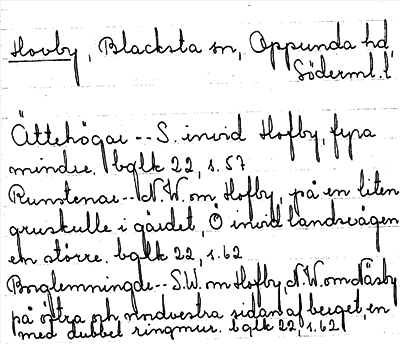 Hovby, Blacksta sn, Oppunda hd,
Söderml. l
Ättehögar -- S. invid Hofby, fyra
mindre. bglk 22, s. 57
Runstenar -- N.W. om Hofby, på en liten
gruskulle i gärdet, O invid landsvägen
en större. bglk 22, s. 62
Borglemningde -- S.W. om Hofby, N.W. om Näsby
på östra och nordvestra sidan af berget, en
med dubbel ringmur. bglk 22, s. 62